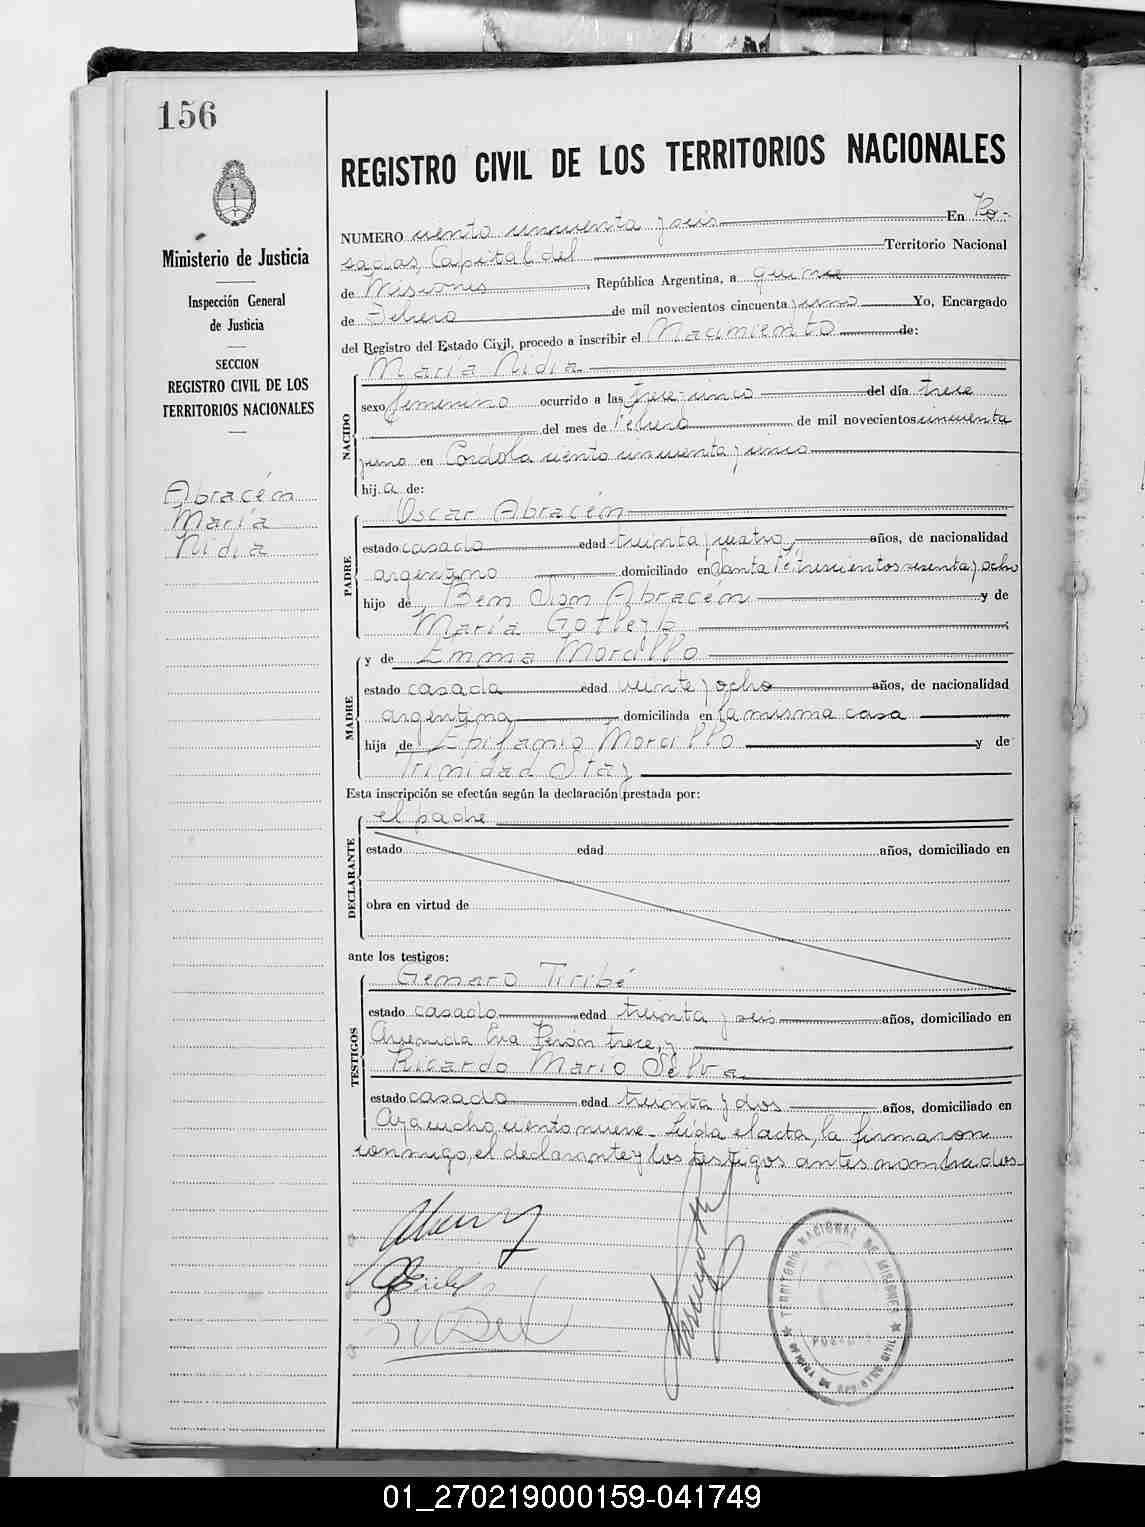 156
REGISTRO CIVIL DE LOS TERRITORIOS NACIONALES
Ministerio de Justicia
Inspección General
de Justicia
SECCION
REGISTRO CIVIL DE LOS
TERRITORIOS NACIONALES
Abracén
María
Nidia
NUMERO ciento cincuenta y seis En Po-
sadas, Capital del Territorio Nacional
de Misiones, República Argentina, a quince
de Febrero de mil novecientos cincuenta y uno Yo, Encargado
del Registro del Estado Civil, procedo a inscribir el Nacimiento de:
NACIDO
María Nidia
sexo femenino ocurrido a las trece y cinco del día trece
del mes de Febrero de mil novecientos cincuenta
y uno en Córdoba ciento cincuenta y cinco
hija de:
PADRE
Oscar Abracén
estado casado edad treinta y cuatro años, de nacionalidad
argentino domiciliado en Santa Fe trescientos sesenta y ocho
hijo de Ben Sion Abracén y de
María Gotleyb
MADRE
y de Emma Morcillo
estado casada edad veinte y ocho años, de nacionalidad
argentina, domiciliada en la misma casa
hija de Epifanio Morcillo y de
Trinidad Stay
Esta inscripción se efectúa según la declaración prestada por:
DECLARANTE
el padre
estado edad años, domiciliado en
obra en virtud de
ante los testigos:
TESTIGOS
Genaro Tiribé
estado casado edad treinta y seis años, domiciliado en
Avenida Eva Perón trece, y
Ricardo Mario Selva
estado casado edad treinta y dos años, domiciliado en
Ayacucho ciento nueve. Leída el acta, la firmaron
conmigo, el declarante y los testigos antes nombrados.
TERRITORIO NACIONAL DE MISIONES
POSADAS
01_270219000159-041749